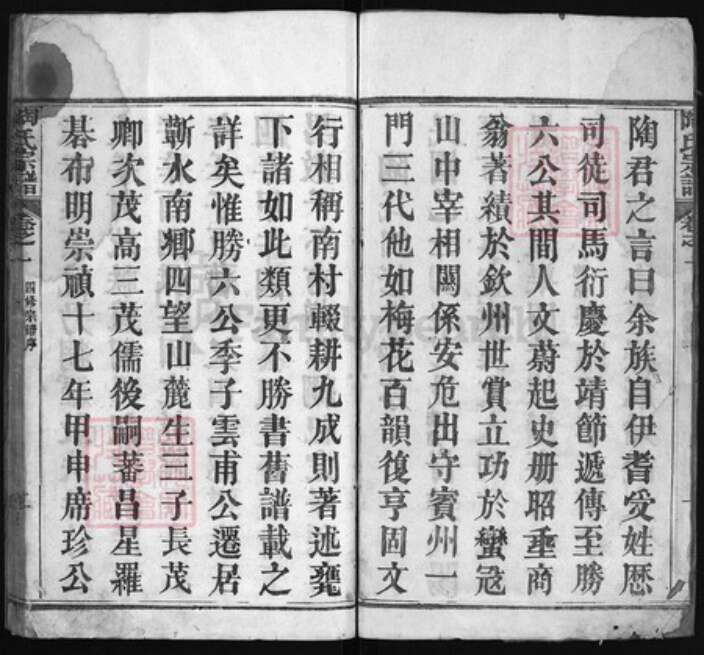 陶氏宗譜 卷之一
陶君之言曰余族自伊耆受姓歷
司徒司馬衍慶於靖節遞傳至勝
六公其間人文蔚起史册昭垂商
翁著績於欽州世賞立功於蠻寇
山中宰相關係安危出守賓州一
門三代他如梅花百韻復亨固文
行相稱南村輟耕九成則著述甕
下諸如此類更不勝書舊譜載之
詳矣惟勝六公季子雲甫公遷居
蘄水南鄉四望山麓生三子長茂
卿次茂高三茂儒後嗣蕃昌星羅
碁布明崇禎十七年甲申席珍公
陶氏宗譜 卷之一 四修宗譜序